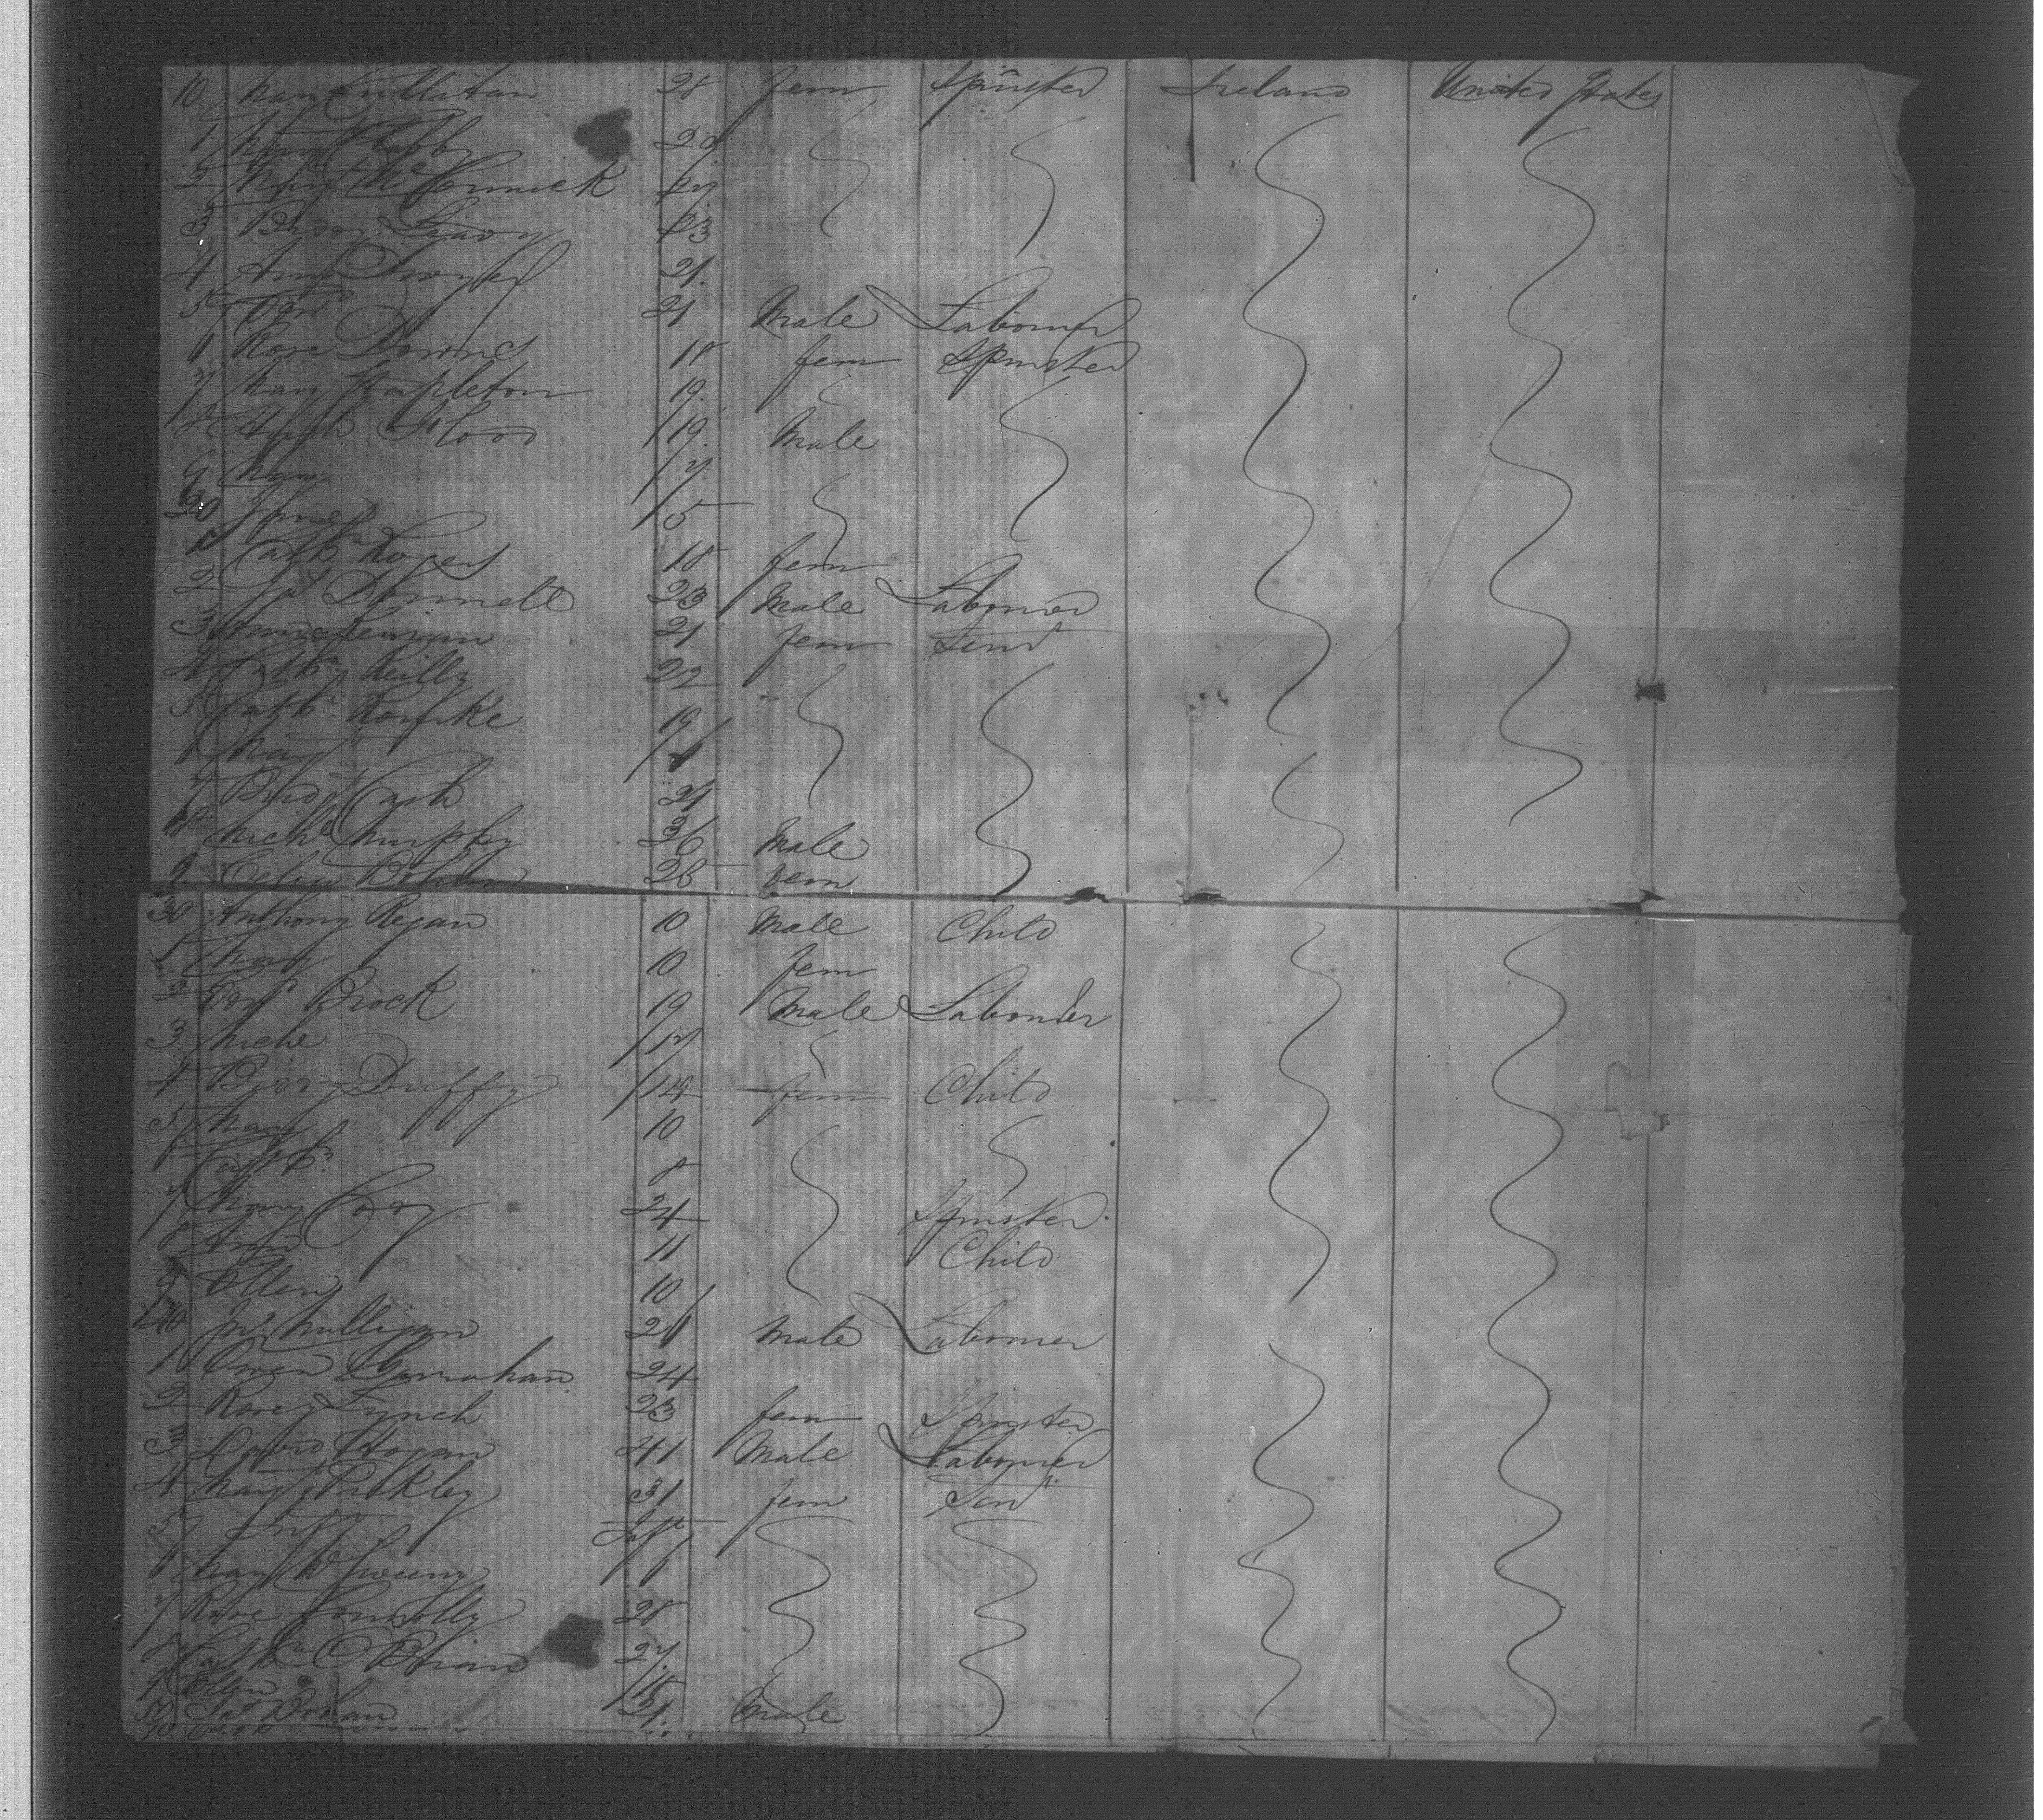 10 Mary Cullitan 28 fem Spinster Ireland United States
1 Mary Clabby 20
2 Mary McCormick 27
3 Biddy Leavy 23
4 Ann Dwyer 21.
5 Edwd 21 Male Labourer
6 Rose Downes 18 fem Spinster
7 Mary Stapleton 19.
8 Hugh Flood /19. Male
9 Mary /7
20 James /5
1 Cathn Rogers 18 fem
2 Jas Donnell 23 Male Labourer
3 Ann Kernan 21 fem Servt
4 Cathn Reilly 22
5 Cathn. Rourke 19
6 Mary
7 Bridt Cash 21
8 Michl Murphy 36 Male
9 Celia Bohlan 26 fem
30 Anthony Regan 10 Male Child
1 Mary 10 fem
2 Brock 19 Male Labourer
3 Michl /17
4 Biddy Duffy /14 fem Child
5 Mary 10
Cathn. 8
7 Mary Cody 24 Spinster.
8 Ann 11 Child
9 Ellen 10
140 Jno Mulligan 26 Male Labourer
1 Owen 24
2 Rosey Lynch 23 fem Spinster
3 David Hogan 41 Male Labourer
4 Mary Pickley 31 fem Servt
5 Inft Inft
6 Mary /6
7 Rose Connolly 28
8 Cathn O'Brian 27.
9 Ellen
50 Jas Dolan 21. Male